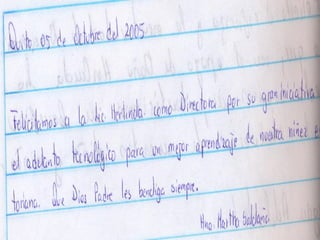 Quito 05 de Octubre del 2005
Felicitamos a la Lic Herlinda como Directora por su gran Iniciativa
el adelanto tecnológico para un mejor aprendizaje de nuestra niñez e
toriana. Que Dios Padre les bendiga siempre.
Hna. Martha